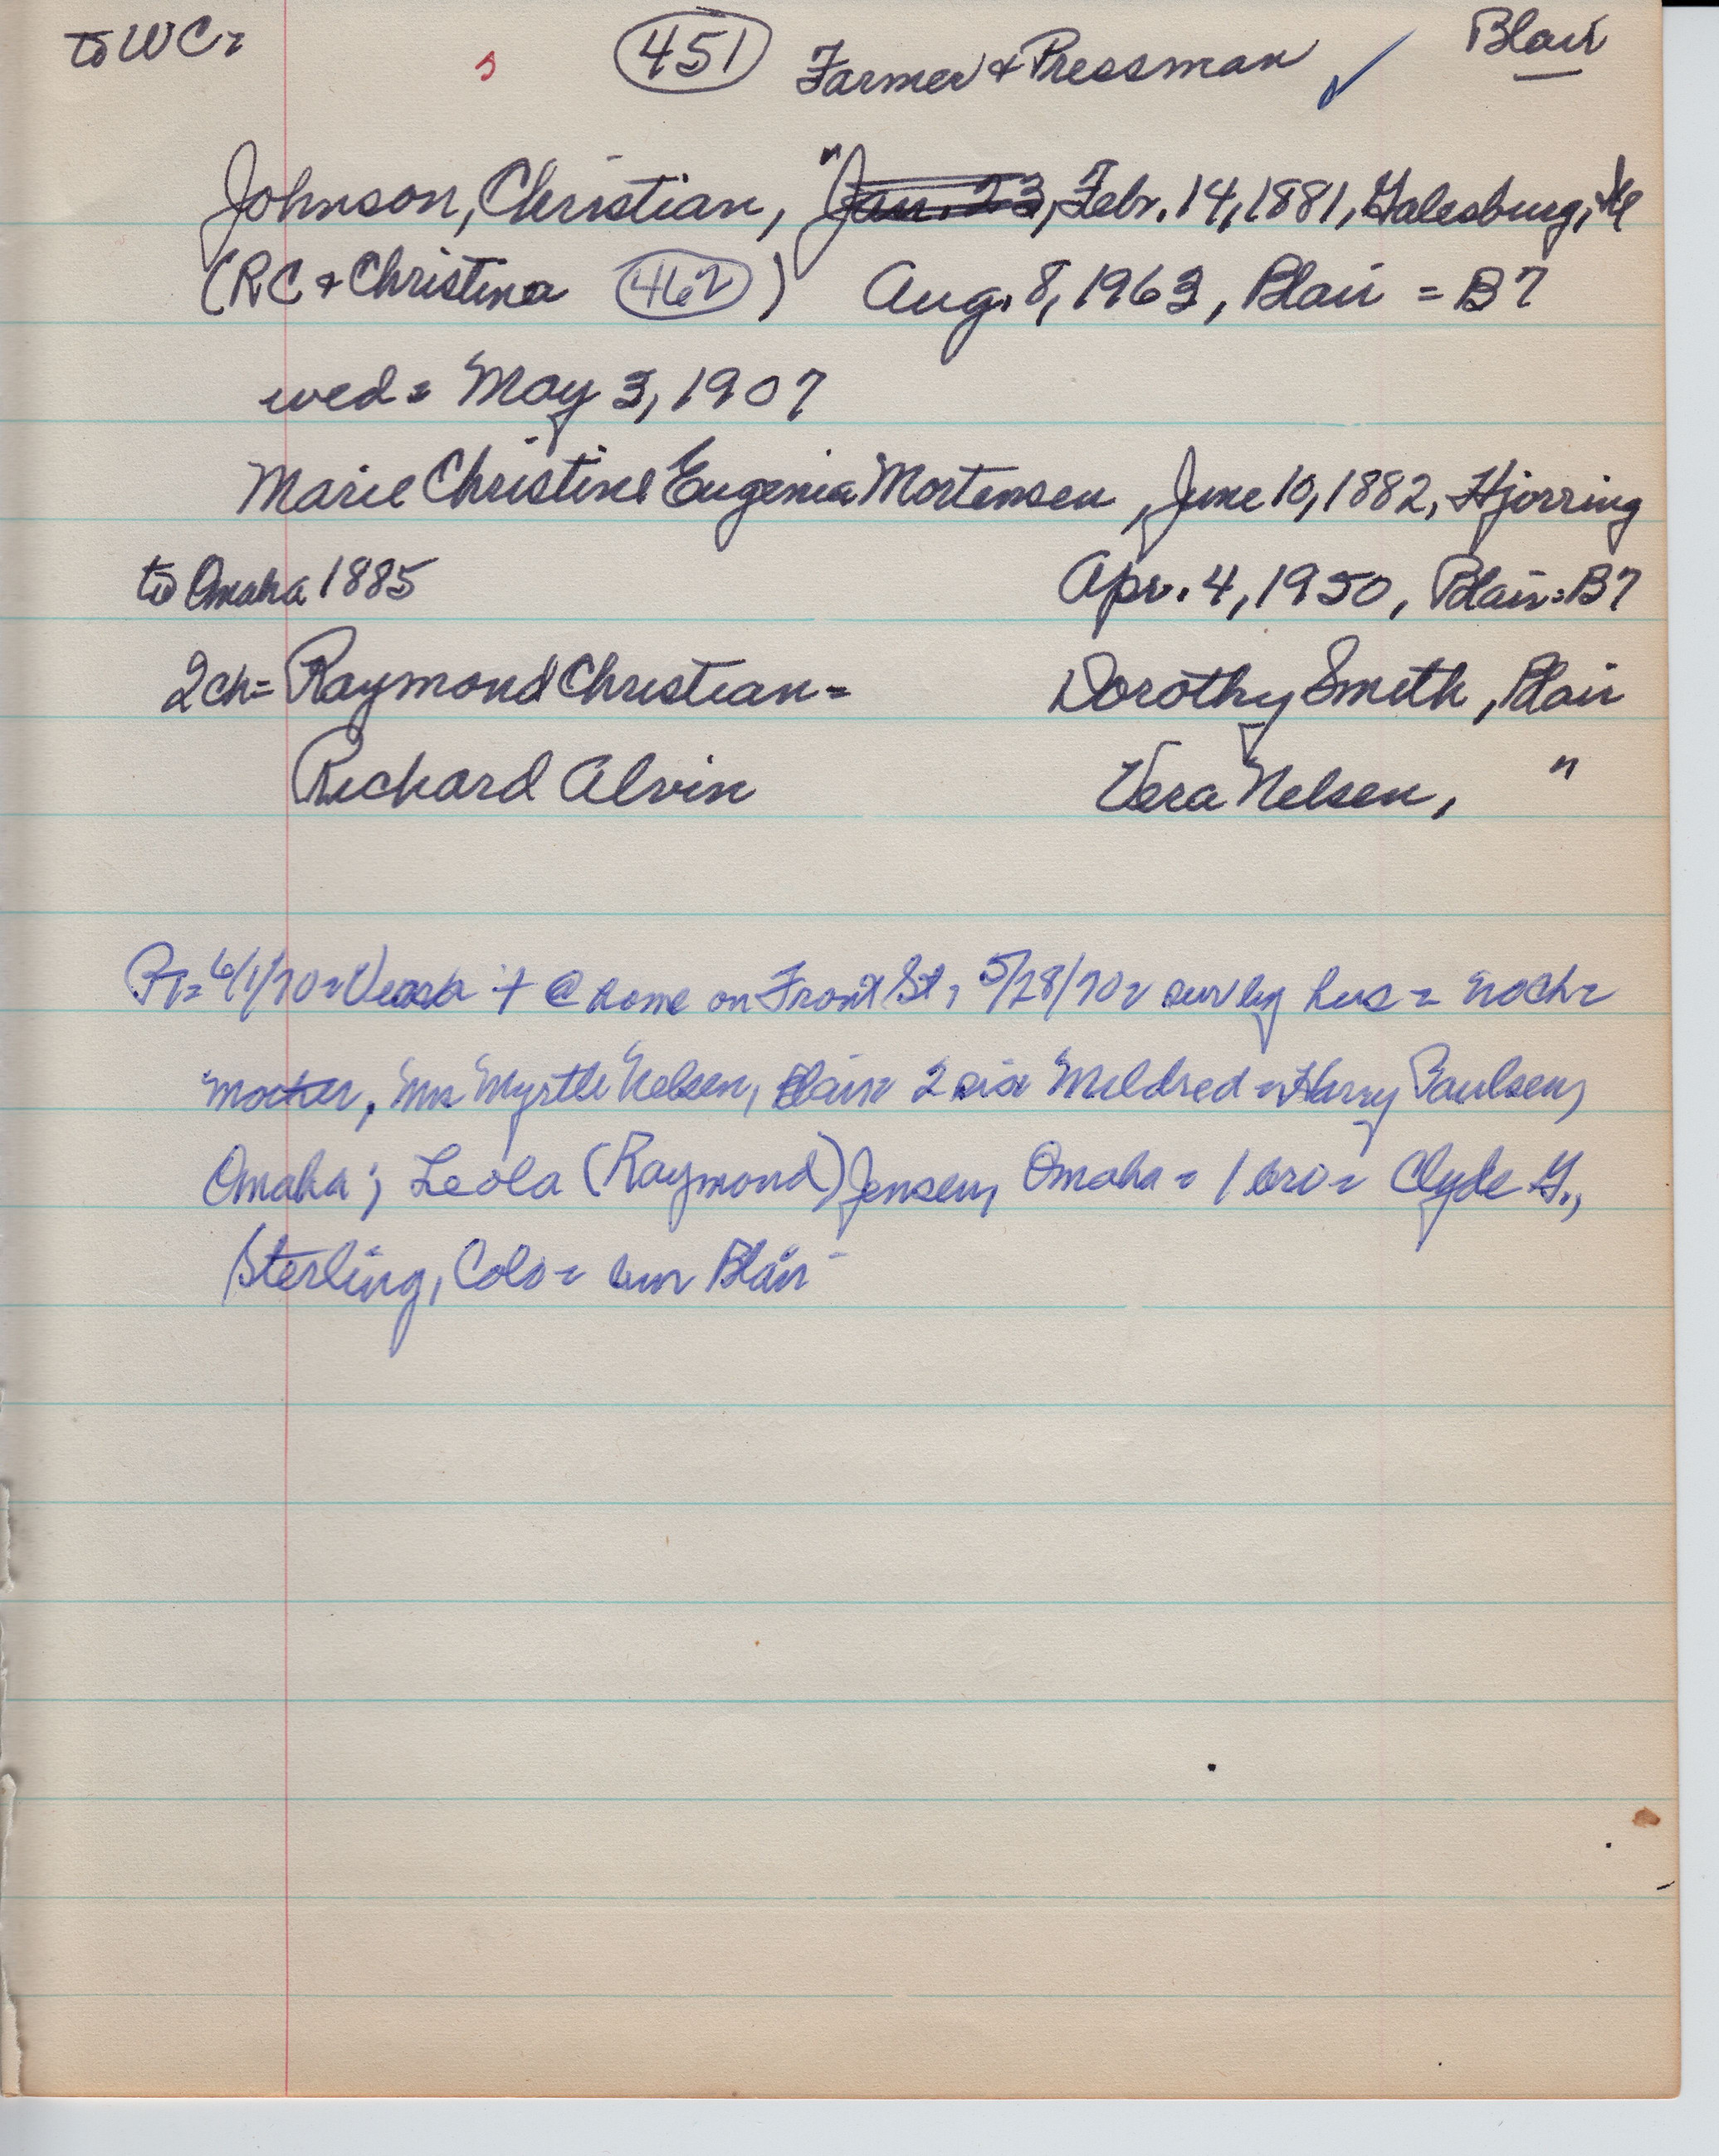 to WC=
s
451
Farmer & Pressman
Blair
Johnson, Christian, " Jan. 23, Febr. 14, 1881, Galesburg, Ill
(RC & Christina 462) Aug. 8, 1963, Blair = B7
wed = May 3, 1907
Marie Christine Eugenia Mortensen, June 10, 1882, Hjorring
to Omaha 1885 Apr. 4, 1950, Blair = B7
2 ch = Raymond Christian = Dorothy Smith, Blair
Richard Alvin Vera Nelsen, "
PT = 6/1/70 = Vera + @ home on Front St, 5/28/70 = surv by hus = no ch =
mother, Mrs Myrtle Nelsen, Blair = 2 sis = Mildred = Harry Paulsen,
Omaha; Leola (Raymond) Jensen, Omaha = 1 bro = Clyde G.,
Sterling, Colo = bur Blair